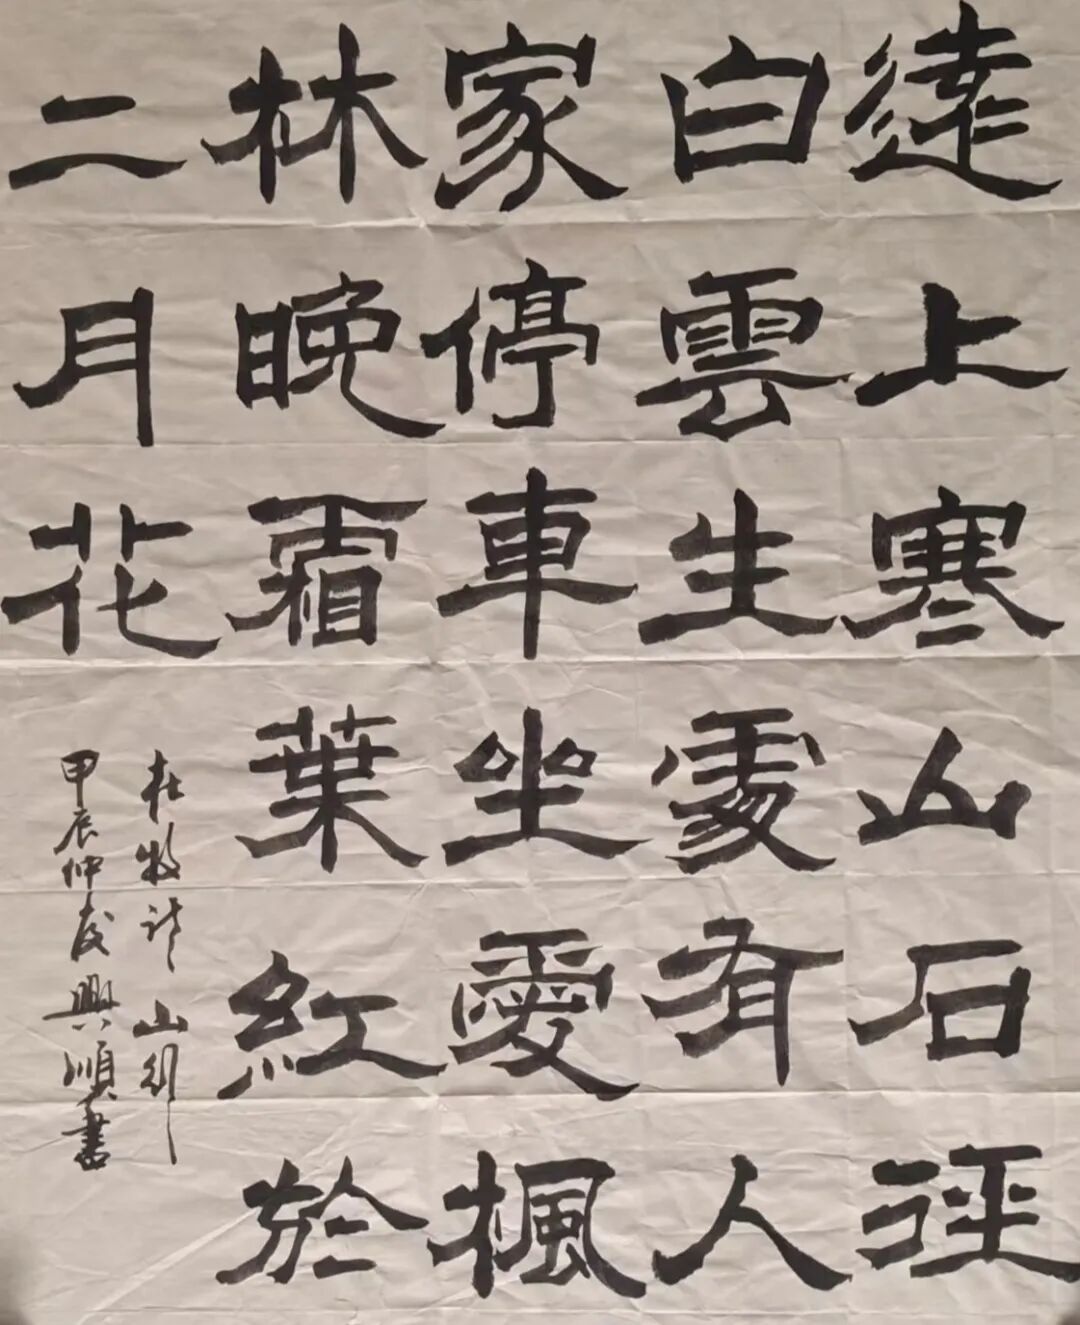 遠上寒山石徑
白雲生處有人
家停車坐愛楓
林晚霜葉紅於
二月花
杜牧詩山行
甲辰仲夏興順書